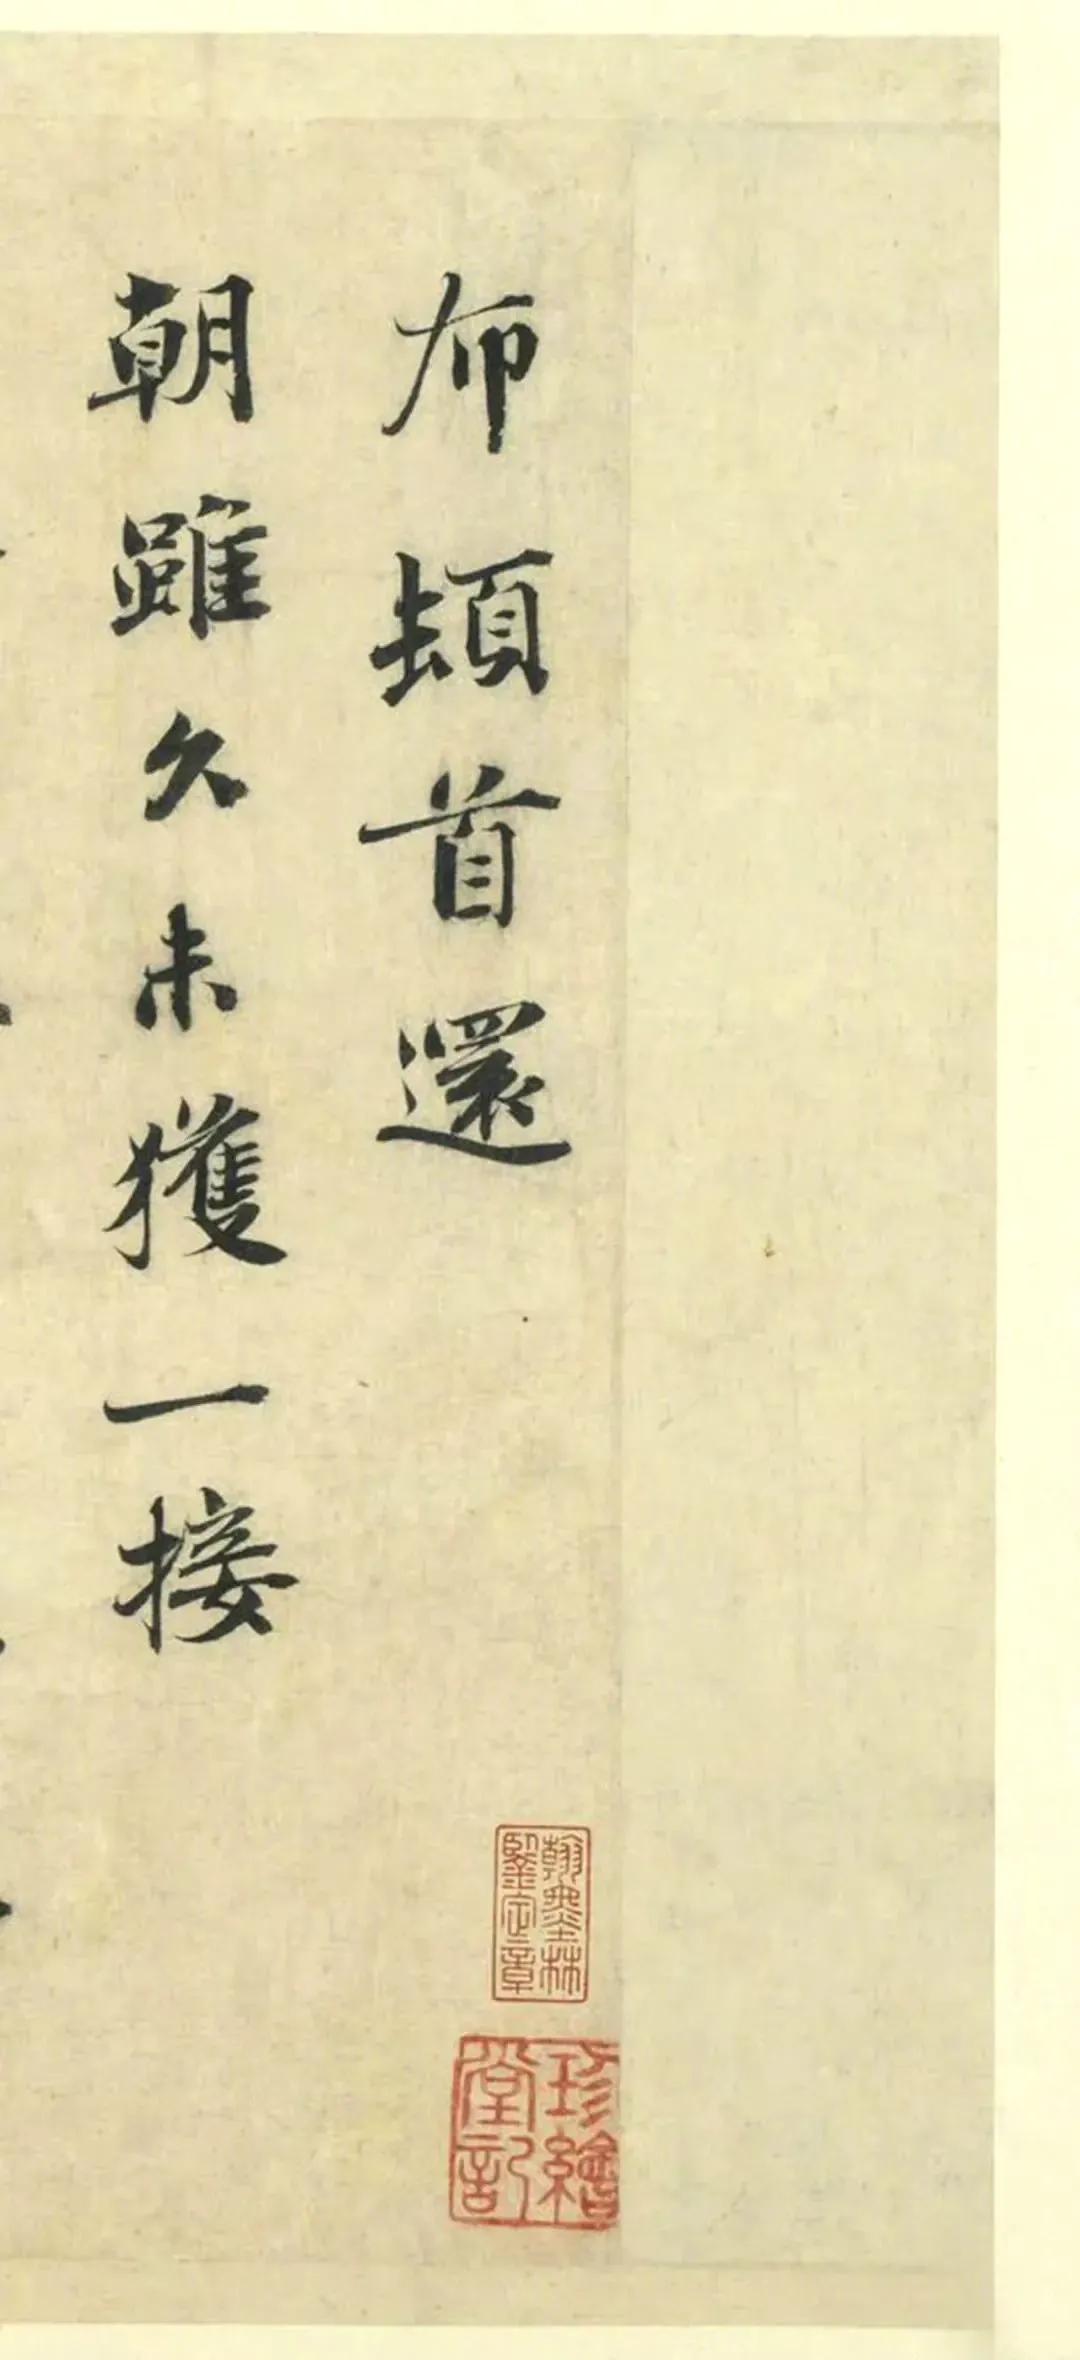 布頓首還
朝雖久未獲一接
翰墨林
鑒定章
珍繪
堂記